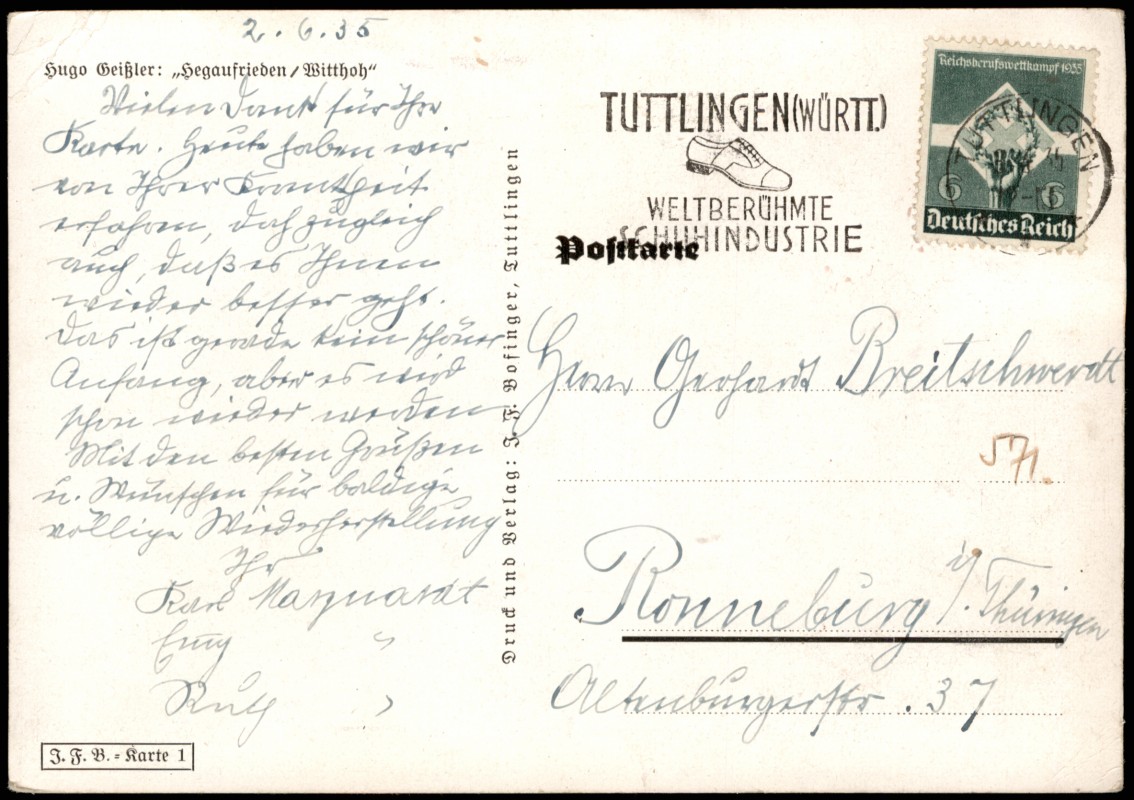 2. 6. 35
Hugo Geißler: „Hegaufrieden / Witthoh“
Vielen Dank für Ihre
Karte. Heute haben wir
von Ihrer Krankheit
erfahren, doch zugleich
auch, daß es Ihnen
wieder besser geht.
Das ist gerade kein schöner
Anfang, aber es wird
schon wieder werden
Mit den besten Grüßen
u. Wünschen für baldige
völlige Wiederherstellung
Ihr
Karl Marquardt
Emy "
Ruth "
J. F. B. = Karte 1
Druck und Verlag: J. F. Bofinger, Tuttlingen
TUTTLINGEN (WÜRTT.)
WELTBERÜHMTE
SCHUHINDUSTRIE
Postkarte
Reichsberufswettkampf 1935
6 6
Deutsches Reich
TUTTLINGEN
Herrn Gerhardt Breitschwerdt
571.
Ronneburg i/Thüringen
Altenburgerstr. 37